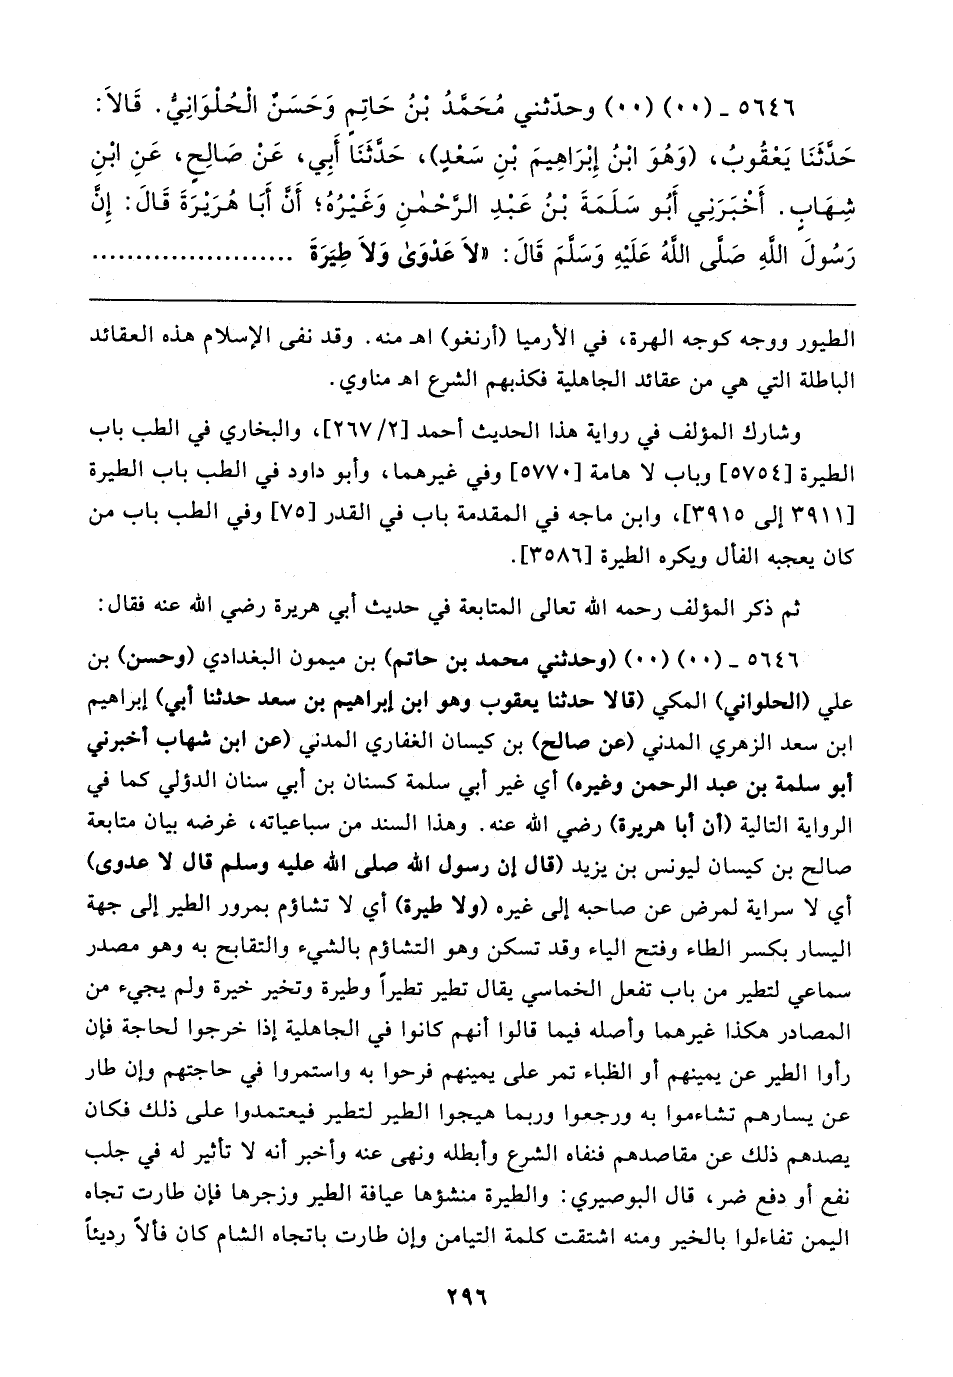 ٥٦٤٦ ـ (٠٠) (٠٠) وحدّثني مُحَمَّدُ بْنُ حَاتِمٍ وَحَسَنٌ الْحُلْوَانِيُّ. قَالاَ:
حَدَّثَنَا يَعْقُوبُ، (وَهُوَ ابْنُ إِبْرَاهِيمَ بْنِ سَعْدٍ)، حَدَّثَنَا أَبِي، عَنْ صَالِحٍ، عَنِ ابْنِ
شِهَابٍ. أَخْبَرَنِي أَبُو سَلَمَةَ بْنُ عَبْدِ الرَّحْمٰنِ وَغَيْرُهُ؛ أَنَّ أَبَا هُرَيْرَةَ قَالَ: إِنَّ
رَسُولَ اللَّهِ صَلَّى اللَّهُ عَلَيْهِ وَسَلَّمَ قَالَ: «لاَ عَدْوَىٰ وَلاَ طِيَرَةَ .......................
الطيور ووجه كوجه الهرة، في الأرميا (أرنغو) اهـ منه. وقد نفى الإسلام هذه العقائد
الباطلة التي هي من عقائد الجاهلية فكذبهم الشرع اهـ مناوي.
وشارك المؤلف في رواية هذا الحديث أحمد [٢/ ٢٦٧]، والبخاري في الطب باب
الطيرة [٥٧٥٤] وباب لا هامة [٥٧٧٠] وفي غيرهما، وأبو داود في الطب باب الطيرة
[٣٩١١ إلى ٣٩١٥]، وابن ماجه في المقدمة باب في القدر [٧٥] وفي الطب باب من
كان يعجبه الفأل ويكره الطيرة [٣٥٨٦].
ثم ذكر المؤلف رحمه الله تعالى المتابعة في حديث أبي هريرة رضي الله عنه فقال:
٥٦٤٦ ـ (٠٠) (٠٠) (وحدثني محمد بن حاتم) بن ميمون البغدادي (وحسن) بن
علي (الحلواني) المكي (قالا حدثنا يعقوب وهو ابن إبراهيم بن سعد حدثنا أبي) إبراهيم
ابن سعد الزهري المدني (عن صالح) بن كيسان الغفاري المدني (عن ابن شهاب أخبرني
أبو سلمة بن عبد الرحمن وغيره) أي غير أبي سلمة كسنان بن أبي سنان الدؤلي كما في
الرواية التالية (أن أبا هريرة) رضي الله عنه. وهذا السند من سباعياته، غرضه بيان متابعة
صالح بن كيسان ليونس بن يزيد (قال إن رسول الله صلى الله عليه وسلم قال لا عدوى)
أي لا سراية لمرض عن صاحبه إلى غيره (ولا طيرة) أي لا تشاؤم بمرور الطير إلى جهة
اليسار بكسر الطاء وفتح الياء وقد تسكن وهو التشاؤم بالشيء والتقابح به وهو مصدر
سماعي لتطير من باب تفعل الخماسي يقال تطير تطيراً وطيرة وتخير خيرة ولم يجيء من
المصادر هكذا غيرهما وأصله فيما قالوا أنهم كانوا في الجاهلية إذا خرجوا لحاجة فإن
رأوا الطير عن يمينهم أو الظباء تمر على يمينهم فرحوا به واستمروا في حاجتهم وإن طار
عن يسارهم تشاءموا به ورجعوا وربما هيجوا الطير لتطير فيعتمدوا على ذلك فكان
يصدهم ذلك عن مقاصدهم فنفاه الشرع وأبطله ونهى عنه وأخبر أنه لا تأثير له في جلب
نفع أو دفع ضر، قال البوصيري: والطيرة منشؤها عيافة الطير وزجرها فإن طارت تجاه
اليمن تفاءلوا بالخير ومنه اشتقت كلمة التيامن وإن طارت باتجاه الشام كان فألاً رديئاً
٢٩٦